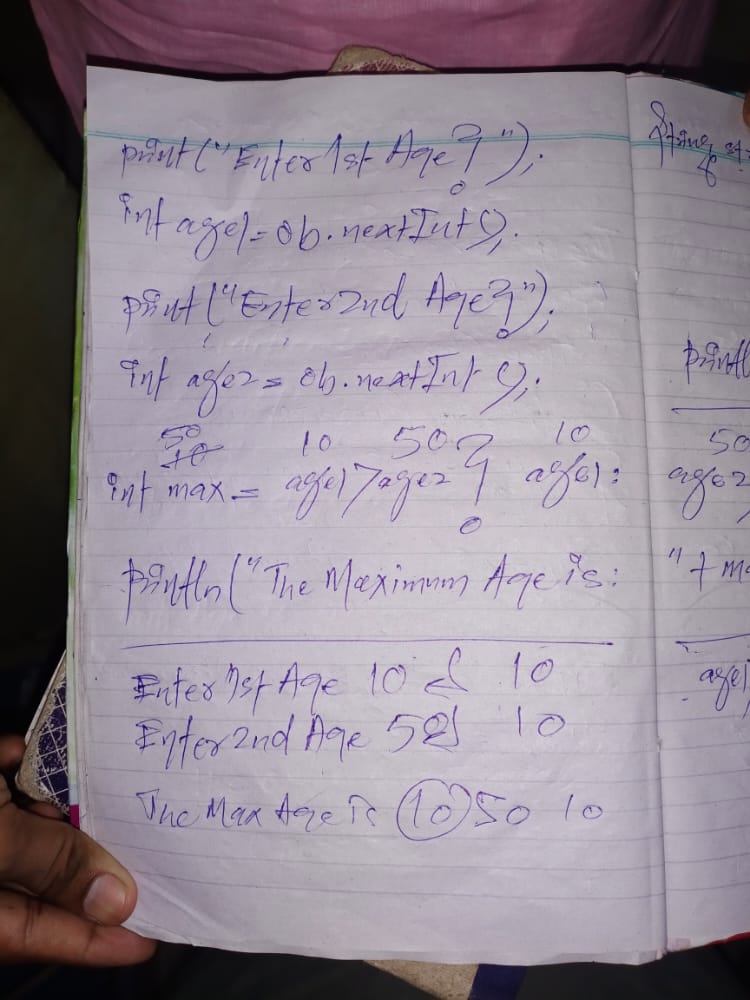 print("Enter 1st Age?");
int age1=ob.nextInt();
print("Enter 2nd Age?");
int age2=ob.nextInt();
50
10 10 50 10 50
int max= age1>age2? age1: age2
println("The Maximum Age is: "+ma
Enter 1st Age 10 10
Enter 2nd Age 50 10
The Max Age is 10 50 10
String st
println
age1